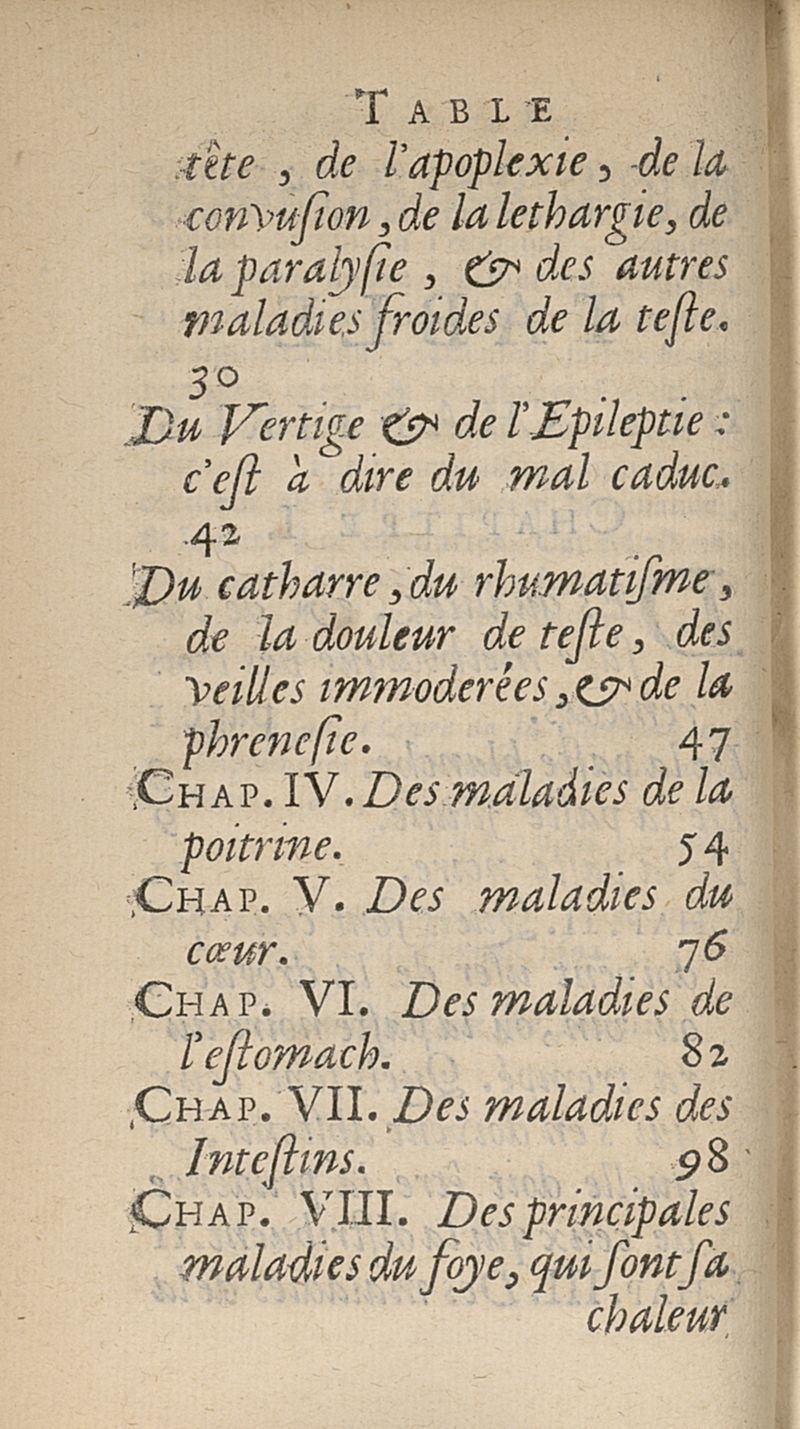 TABLE
tête , de l'apoplexie , de la
convuſion , de la lethargie, de
la paralyſie , & des autres
maladies froides de la teſte.
30
Du Vertige & de l'Epileptie :
c'eſt à dire du mal caduc.
42
Du catharre , du rhumatiſme ,
de la douleur de teſte , des
veilles immoderées , & de la
phreneſie. 47
CHAP. IV. Des maladies de la
poitrine. 54
CHAP. V. Des maladies du
cœur. 76
CHAP. VI. Des maladies de
l'eſtomach. 82
CHAP. VII. Des maladies des
Inteſtins. 98
CHAP. VIII. Des principales
maladies du foye, qui ſont ſa
chaleur